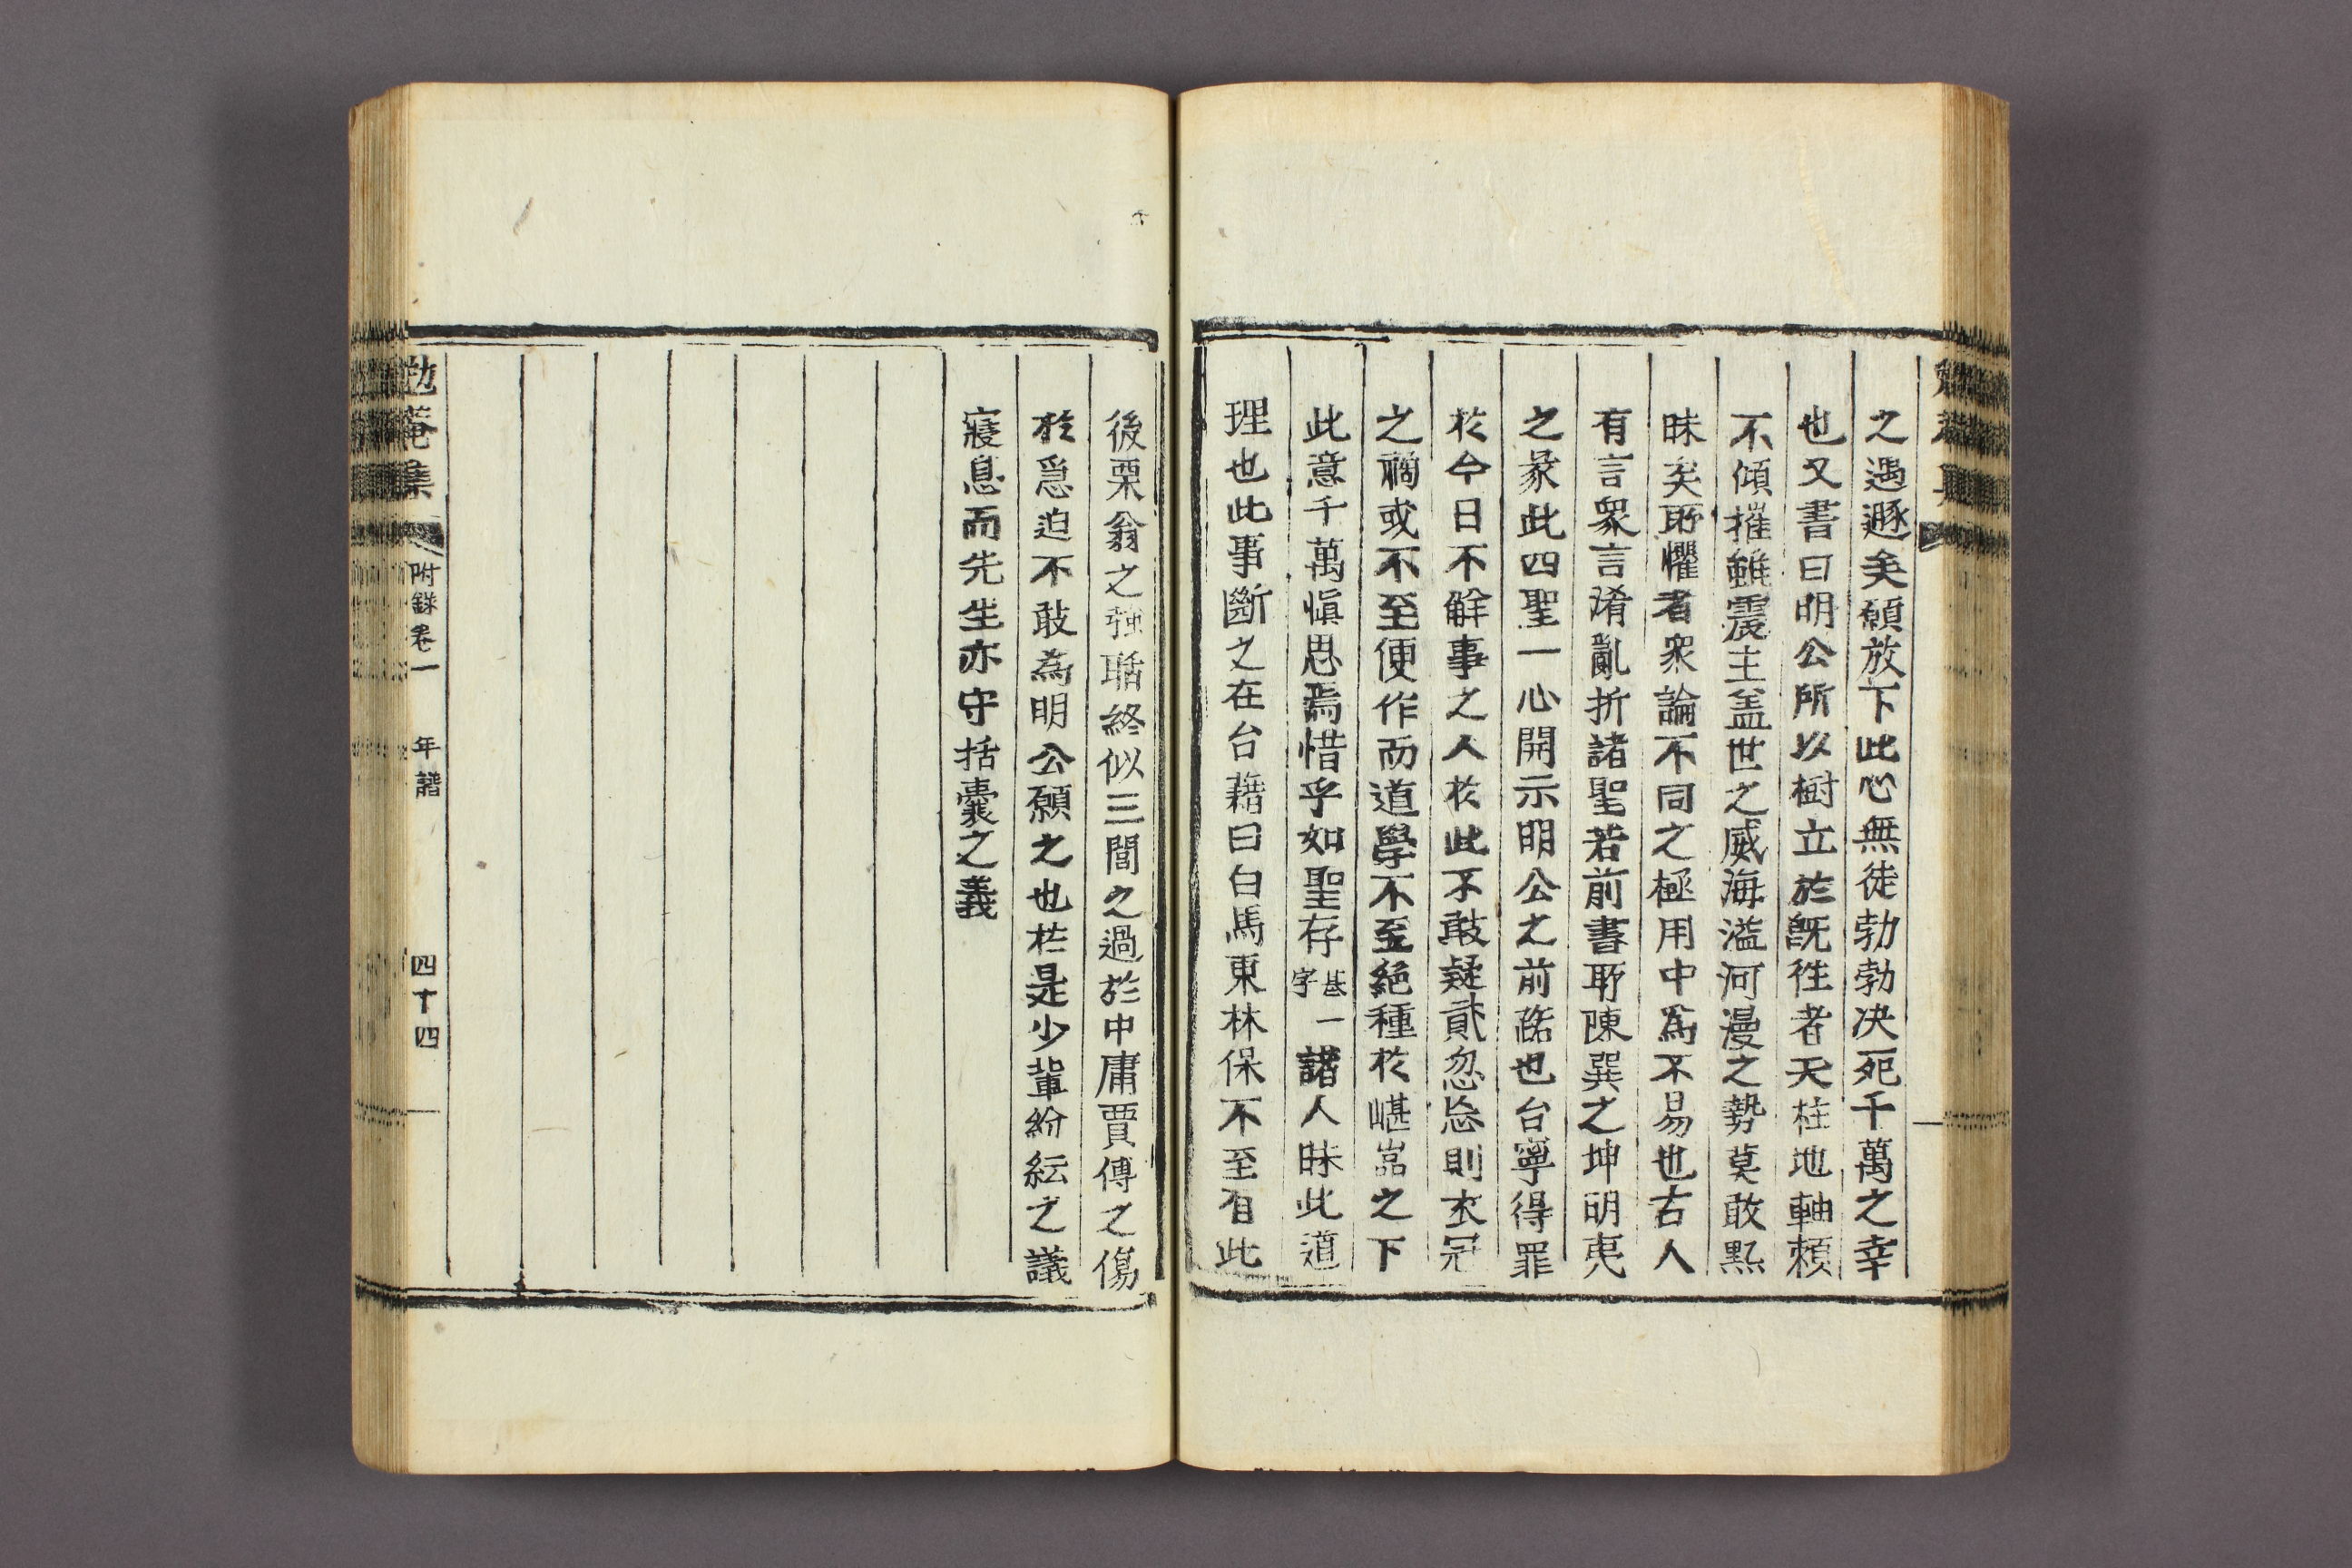 之遇遯矣願放下此心無徒勃勃决死千萬之幸
也又書曰明公所以樹立於旣徃者天柱地軸頼
不傾摧雖震主盖世之威海溢河漫之勢莫敢點
昧矣所懼者衆論不同之極用中爲不易也古人
有言衆言淆亂折諸聖若前書所陳巽之坤明夷
之彖此四聖一心開示明公之前路也台寧得罪
於今日不觧事之人於此不敢疑貳忽忽則衣冠
之禍或不至便作而道學不至絕種於嵁嵓之下
此意千萬愼思焉惜乎如聖存甚字一諸人昧此道
理也此事斷之在台藉曰白馬東林保不至有此
後栗翁之强聒終似三閭之過於中庸賈傅之傷
於急迫不敢為明公願之也於是少輩紛紜之議
寢息而先生亦守括囊之義
勉菴集
附錄卷一
年譜
四十四